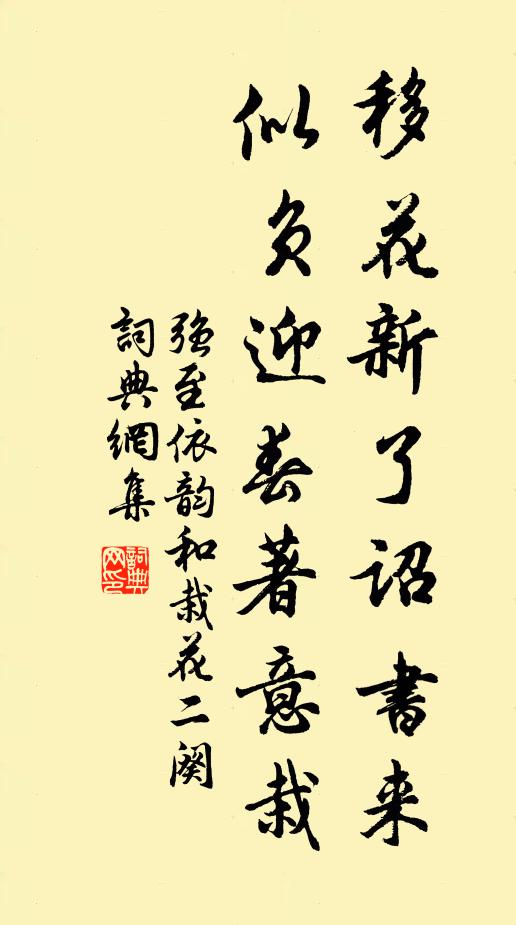 移花新了詔書来
似负迎春著意栽
強至依韵和栽花二阕
詞典網集
詞典网印